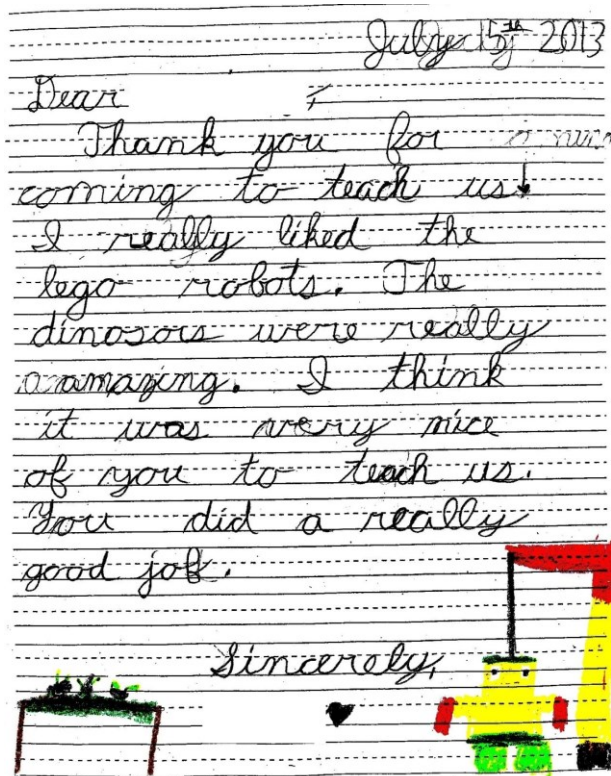 July 15th 2013
Dear ,
Thank you for
coming to teach us!
I really liked the
lego robots. The
dinosors were really
amazing. I think
it was very nice
of you to teach us.
You did a really
good job.
Sincerely,